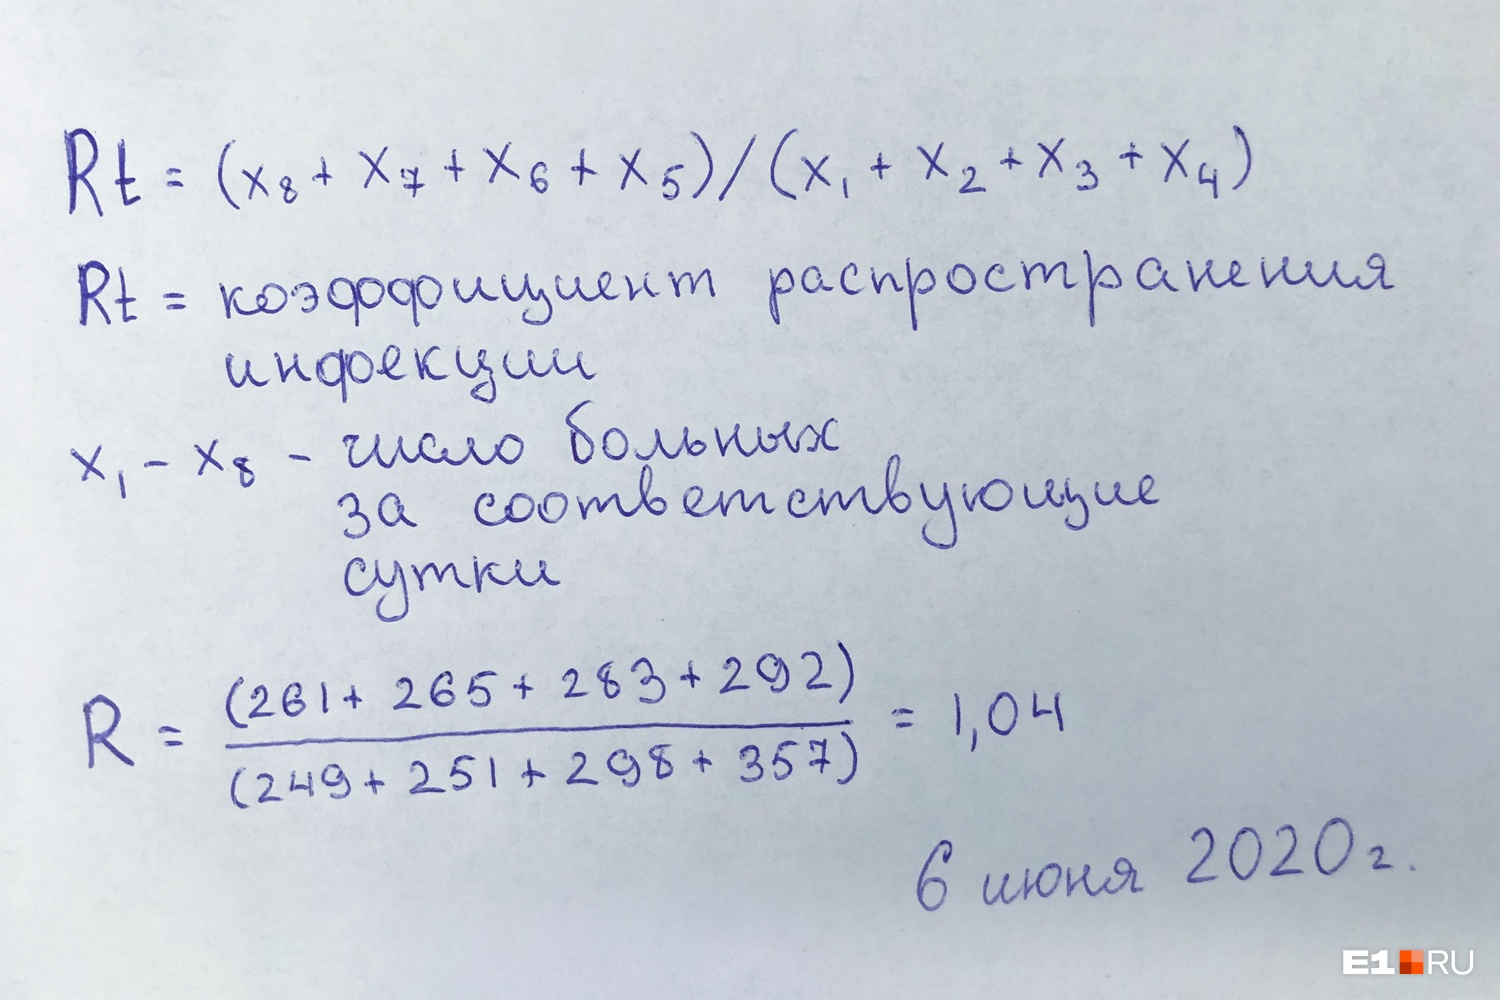 Rt = (x₈ + x₇ + x₆ + x₅) / (x₁ + x₂ + x₃ + x₄)
Rt = коэффициент распространения
инфекции
x₁ – x₈ – число больных
за соответствующие
сутки
R = (261 + 265 + 283 + 292) / (249 + 251 + 298 + 357) = 1,04
6 июня 2020 г.
E1.RU